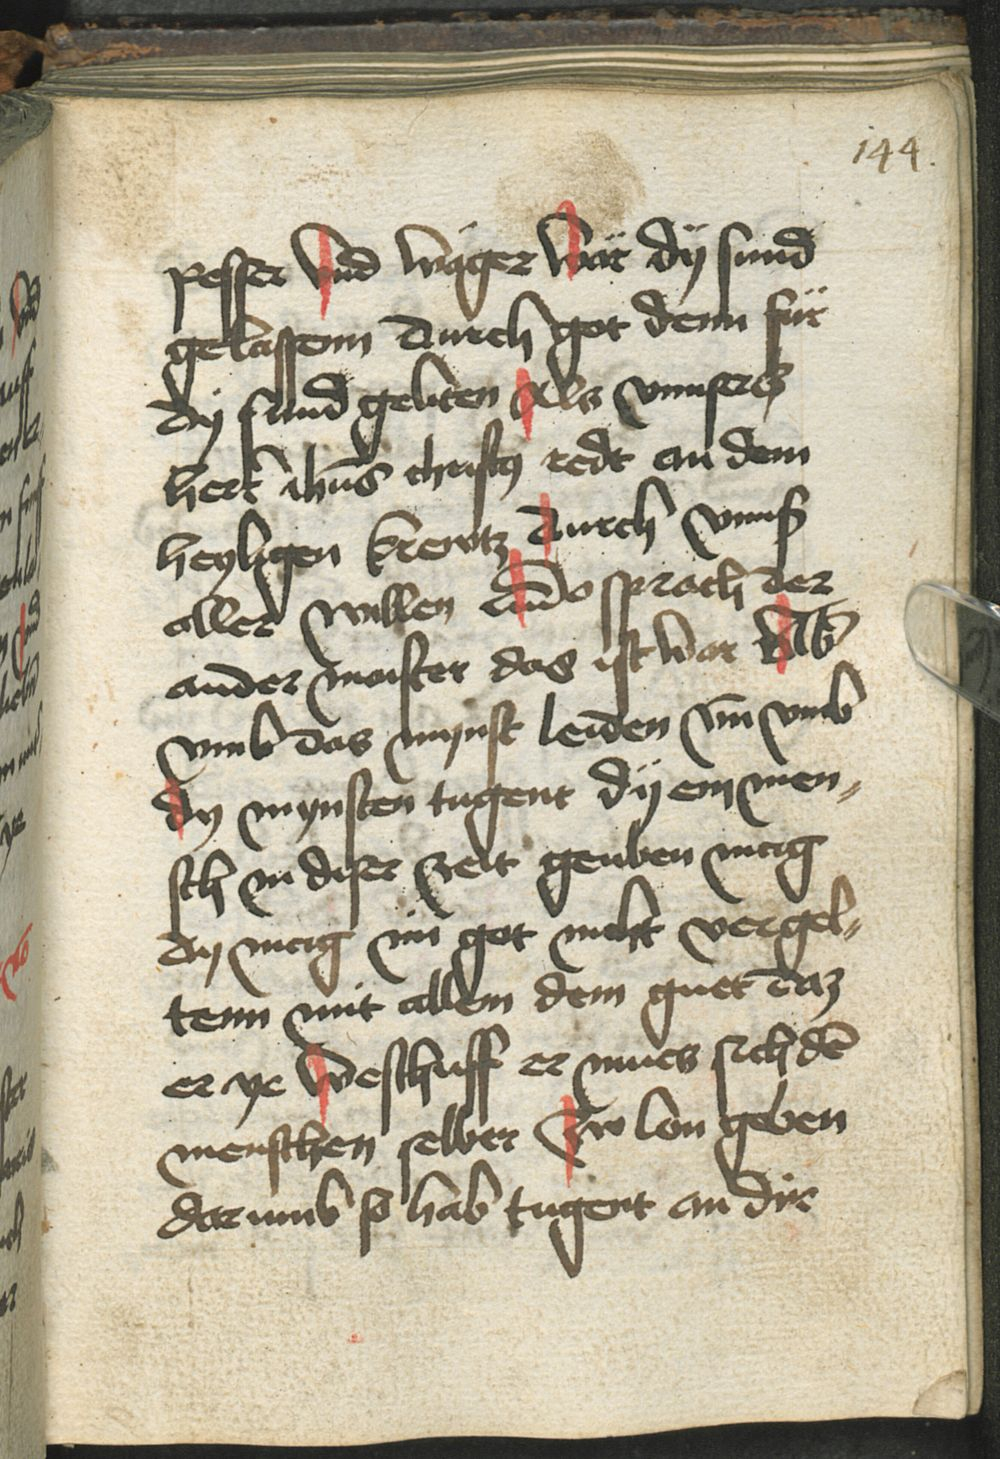 144.
pesser vnd wäger wär dÿ sünd
gelassenn durch got denn für
dÿ sünd geliten Als vnnser
herr ihūs christꝯ redt an dem
heyligen krewtz durch vnnß
aller willen Auch sprach der
ander maister das ist war Vnd
vmb das mynst leiden vnd vmb
dy mynsten tugent dÿ ein men-
sch in diser zeit geuben mag
dy mag im got nicht vergel-
tenn mit allem dem guet daz
er ye weschuff er mues sich dē
menschen selber zw lon geben
dar umb so hab tugent an dir